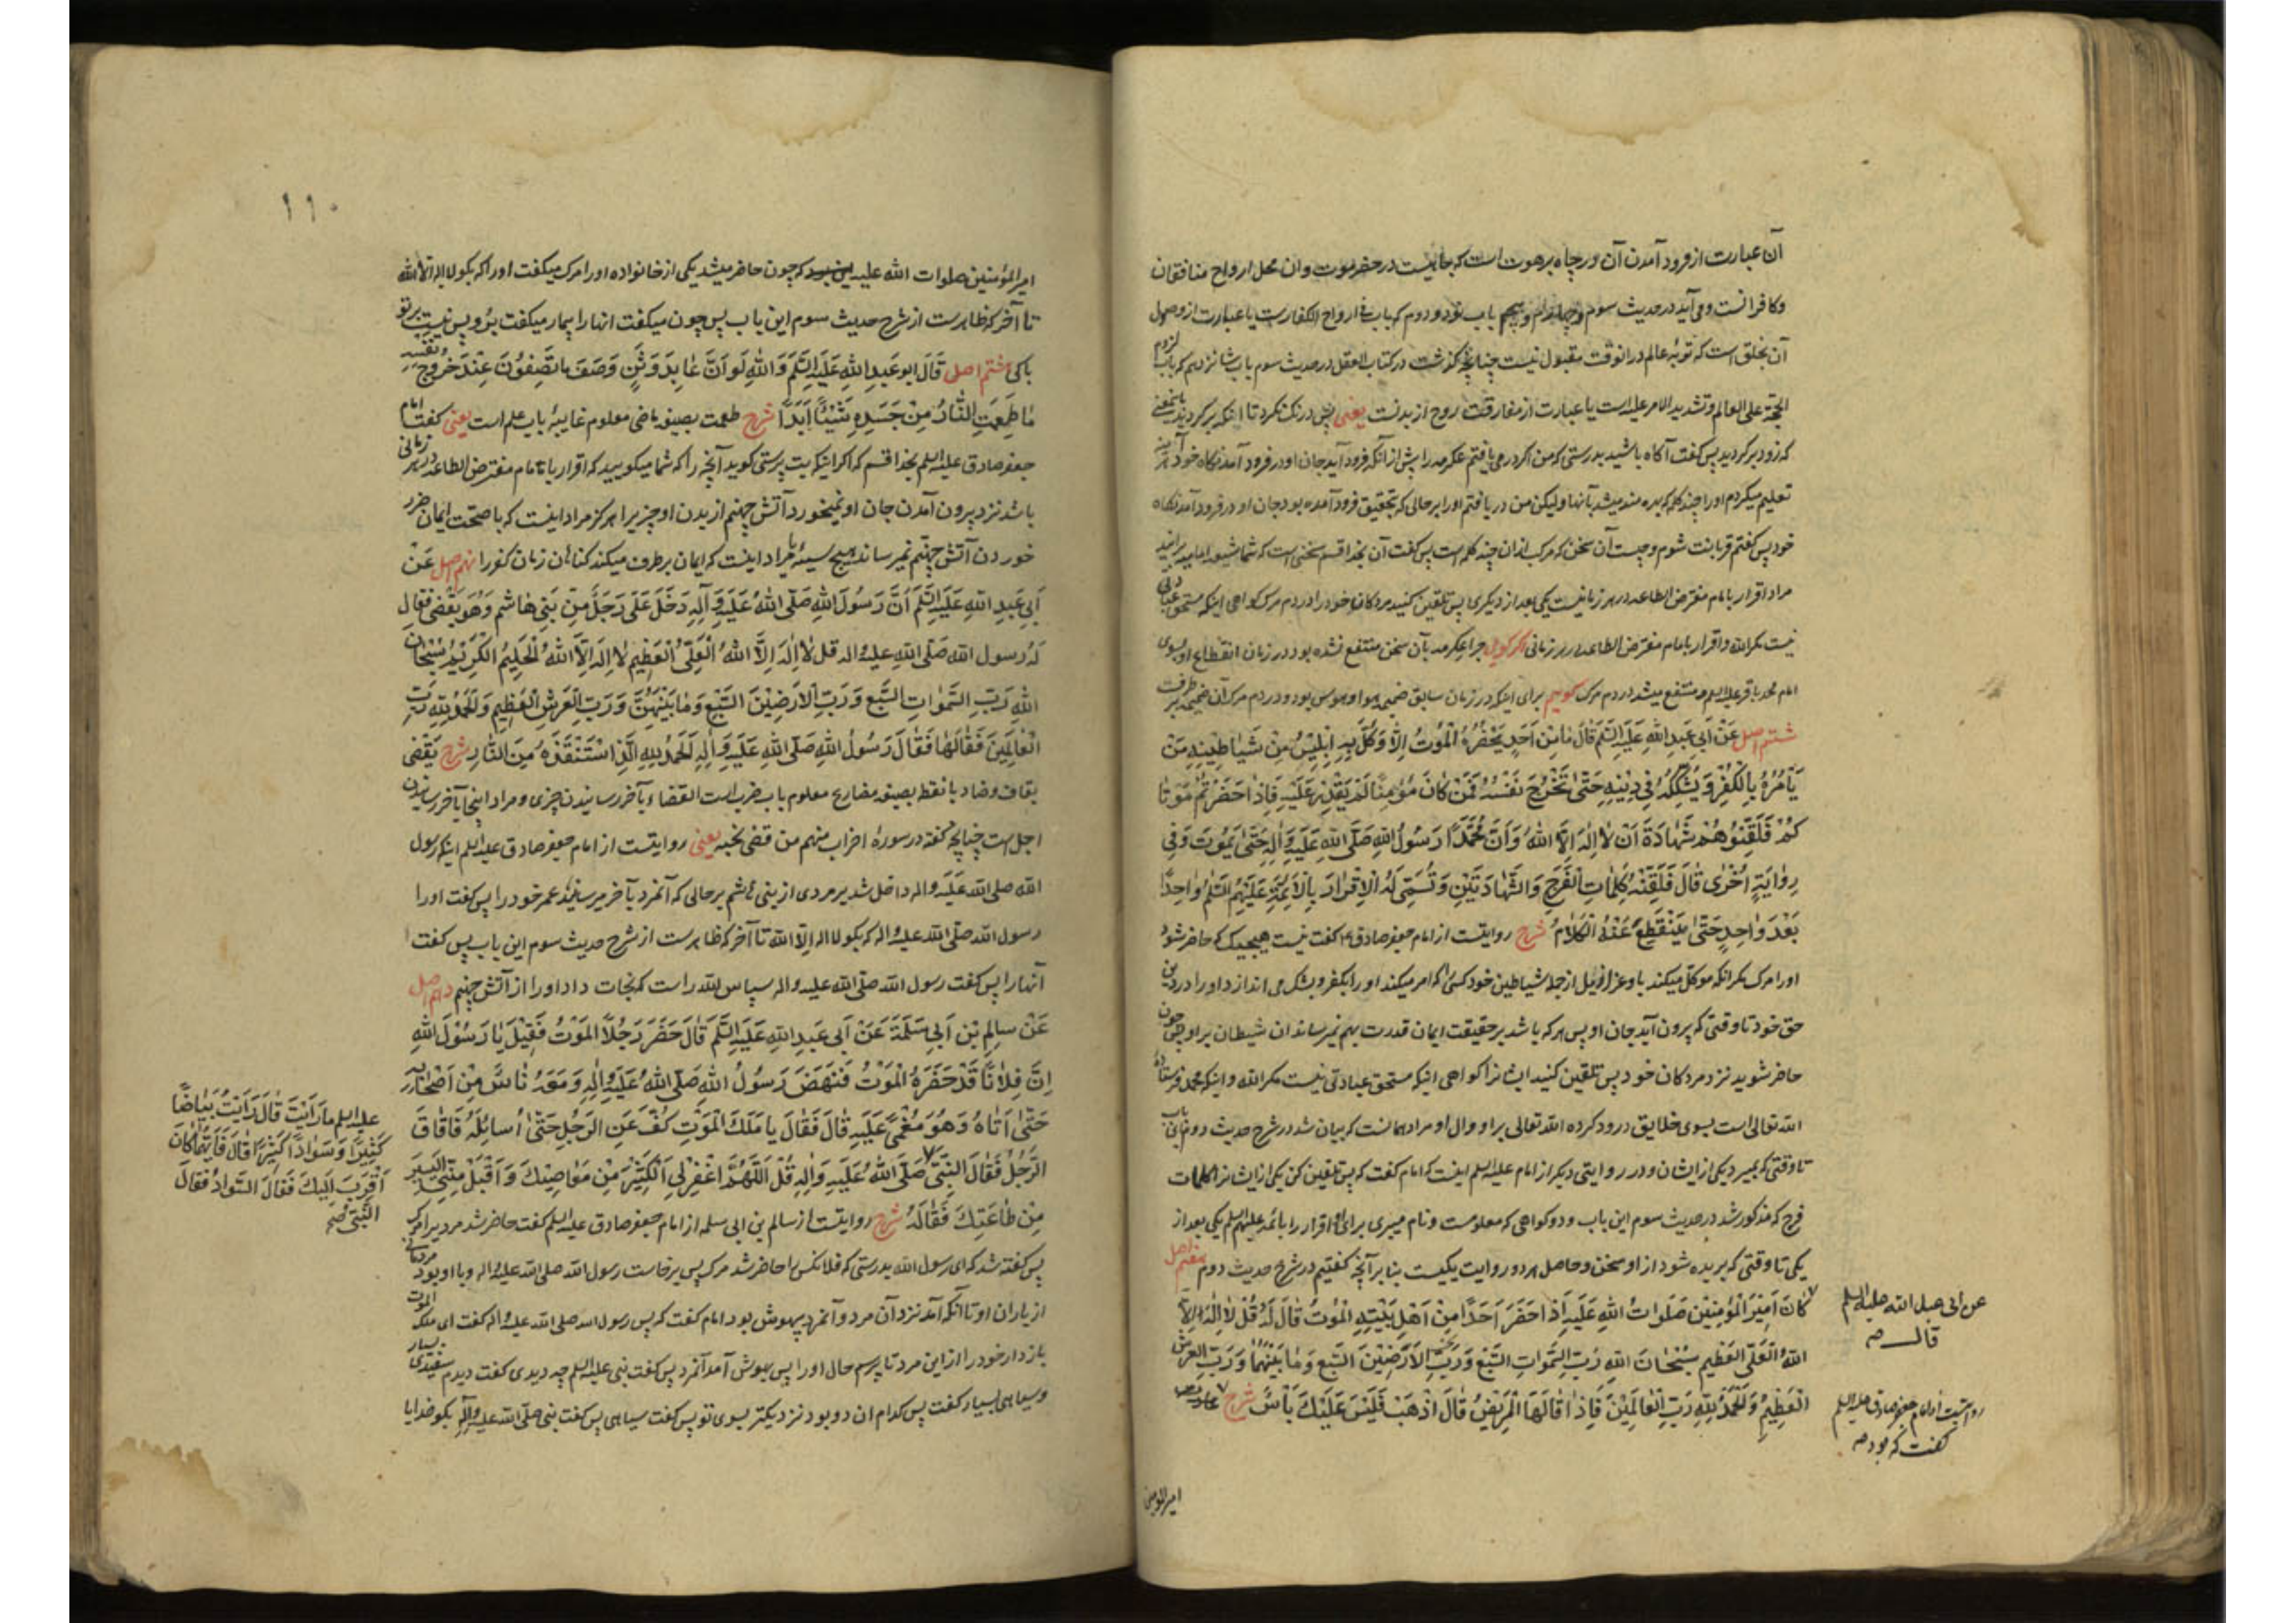 آن عبارت از فرود آمدن آن در چاه برهوت است که جائیست در حضرموت و ان محل ارواح منافقان
و کافرانست و می آید در حدیث سوم و چهارم و پنجم باب نود و دوم که باب فی ارواح الکفارست یا عبارت از وصول
آن بحلق است که توبهٔ عالم در انوقت مقبول نیست چنانچه گذشت در کتاب العقل در حدیث سوم باب شانزدهم که باب لزوم
الحجة علی العالم و تشدید الامر علیه است یا عبارت از مفارقت روح از بدنست یعنی پس درنک نکرد تا اینکه برکردید
که زود برکردید پس کفت آکاه باشید بدرستی که من اکر درمی یافتم عکرمه را پیش از آنکه فرود آید جان او در فرود آمدنکاه خود آینه
تعلیم میکردم او را چند کلمه که بهره مند میشد بآنها ولیکن من دریافتم او را بر حالی که بتحقیق فرود آمده بود جان او در فرود آمدنکاه
خود پس کفتم قربانت شوم و چیست آن سخن که مرکب ازان چند کلمه است پس کفت آن بخدا قسم سخنی است که شما شیعه امامیه برانید
مراد اقرار بامام مفترض الطاعه در هر زمانیست یکی بعد از دیکری پس تلقین کنید مردکان خود را در دم مرک کواهی اینکه مستحق عبادتی
نیست مکر الله و اقرار بامام مفترض الطاعه در هر زمانی اگر گویی چرا عکرمه بآن سخن منتفع نشده بود در زمان انقطاع او بسوی
امام محمد باقر علیه السلم و منتفع میشد در دم مرک گوییم برای اینکه در زمان سابق ضمیمهٔ هوا و هوس بود و در دم مرک آن ضمیمه برطرف
ششم اصل عَنْ اَبی عَبدِ اللهِ عَلَیهِ السَّلَم قَالَ مٰا مِنْ اَحَدٍ یَحْضُرُهُ الْمَوتُ اِلَّا وَکَّلَ بِهِ اِبْلِیسُ مِنْ شَیَاطِینِهِ مَنْ
یَأْمُرُهُ بِالْکُفْرِ وَ یُشَکِّکُهُ فِی دِینِهِ حَتّٰی تَخْرُجَ نَفْسُهُ فَمَنْ کٰانَ مُؤْمِنًا لَمْ یَقْدِرْ عَلَیْهِ فَاِذٰا حَضَرْتُمْ مَوْتٰا
کُمْ فَلَقِّنُوهُمْ شَهٰادَةَ اَنْ لٰا اِلٰهَ اِلَّا اللهُ وَ اَنَّ مُحَمَّدًا رَسُولُ اللهِ صَلَّی اللهُ عَلَیهِ وَاٰلِهِ حَتّٰی یَمُوتَ وَفِی
رِوٰایَةٍ اُخْرٰی قَالَ فَلَقِّنْهُ کَلِمَاتِ الْفَرَجِ وَالشَّهٰادَتَیْنِ وَتُسَمِّی لَهُ الْاِقْرٰارَ بِالْاَئِمَّةِ عَلَیْهِمُ السَّلَم وٰاحِدًا
بَعْدَ وٰاحِدٍ حَتّٰی یَنْقَطِعَ عَنْهُ الْکَلٰامُ شرح روایتست از امام جعفر صادق ع کفت نیست هیچیک که حاضر شود
او را مرک مکر انکه موکل میکند باو عزازیل از جمله شیاطین خود کسی را که امر میکند او را بکفر و بشک می اندازد او را در دین
حق خود تا وقتی که بیرون آید جان او پس هر که باشد بر حقیقت ایمان قدرت بهم نمیرساند ان شیطان بر او پس چون
حاضر شوید نزد مردکان خود پس تلقین کنید ایشانرا کواهی اینکه مستحق عبادتی نیست مکر الله و اینکه محمد فرستادهٔ
الله تعالی است بسوی خلایق درود کرده الله تعالی بر او و ال او مراد همانست که بیان شد در شرح حدیث دوم این باب
تا وقتی که بمیرد یکی از ایشان و در روایتی دیکر از امام علیه السلم اینست که امام کفت که پس تلقین کن یکی از ایشانرا کلمات
فرج که مذکور شد در حدیث سوم این باب و دو کواهی که معلومست و نام میبری برای او اقرار را بائمه علیهم السلم یکی بعد از
یکی تا وقتی که بریده شود از او سخن و حاصل هر دو روایت یکیست بنابر آنچه کفتیم در شرح حدیث دوم هفتم اصل
کٰانَ اَمِیْرُ الْمُؤْمِنِیْنَ صَلَوٰاتُ اللهِ عَلَیهِ اِذٰا حَضَرَ اَحَدًا مِنْ اَهْلِ بَیْتِهِ الْمَوْتُ قٰالَ لَهُ قُلْ لٰا اِلٰهَ اِلَّا
اللهُ الْعَلِیُّ الْعَظِیم سُبْحٰانَ اللهِ رَبِّ السَّمٰوٰاتِ السَّبْعِ وَرَبِّ الْاَرَضِیْنَ السَّبْعِ وَمٰا بَیْنَهُمٰا وَرَبِّ الْعَرْشِ
الْعَظِیْمِ وَالْحَمْدُ لِلّٰهِ رَبِّ الْعٰالَمِیْنَ فَاِذٰا قٰالَهَا الْمَرِیْضُ قٰالَ اذْهَبْ فَلَیْسَ عَلَیْكَ بَأْسٌ شرح
عن ابی عبد الله علیه السلم
قال صه
روایتست از امام جعفر صادق علیه السلم
کفت که بود صه
امیر المؤمنین
١١٠
امیر المؤمنین صلوات الله علیه که چون حاضر میشد یکی از خانواده او را مرک میکفت او را که بکو لا اله الا الله
تا آخر که ظاهرست از شرح حدیث سوم این باب پس چون میکفت انها را بیمار میکفت برو پس نیست بر تو
باکی هشتم اصل قَالَ ابو عَبدِ اللهِ عَلَیهِ السَّلَم وَاللهِ لَو اَنَّ عٰابِدَ وَثَنٍ وَصَفَ مٰا تَصِفُونَ عِنْدَ خُرُوجِ نَفْسِهِ
مٰا طَعِمَتِ النّٰارُ مِنْ جَسَدِهِ شَیْئًا اَبَدًا شرح طعمت بصیغهٔ ماضی معلوم غایبهٔ باب علم است یعنی کفت امام
جعفر صادق علیه السلم بخدا قسم که اکر اینکه بت پرستی کوید آنچه را که شما میکویید که اقرار بامام مفترض الطاعه در هر زمانی
باشد نزد بیرون آمدن جان او نمیخورد آتش جهنم از بدن او چیزیرا هرکز مراد اینست که با صحت ایمان ضرر
خوردن آتش جهنم نمیرساند هیچ سیئه یا مراد اینست که ایمان برطرف میکند کناهان زمان کفر را نهم اصل عَنْ
اَبِی عَبدِ اللهِ عَلَیهِ السَّلَم اَنَّ رَسُولَ اللهِ صَلَّی اللهُ عَلَیهِ وَاٰلِهِ دَخَلَ عَلٰی رَجُلٍ مِنْ بَنِی هٰاشِم وَهُوَ یَقْضِی فَقٰالَ
لَهُ رسول الله صَلَّی اللهِ علیه واله قل لٰا اِلٰهَ اِلَّا اللهُ الْعَلِیُّ الْعَظِیمُ لٰا اِلٰهَ اِلَّا اللهُ الْحَلِیمُ الْکَرِیْمُ سُبْحٰانَ
اللهِ رَبِّ السَّمٰوٰاتِ السَّبْعِ وَرَبِّ الْاَرَضِیْنَ السَّبْعِ وَمٰا بَیْنَهُنَّ وَرَبِّ الْعَرْشِ الْعَظِیمِ وَالْحَمْدُ لِلّٰهِ رَبِّ
الْعٰالَمِیْنَ فَقٰالَهٰا فَقٰالَ رَسُولُ اللهِ صَلَّی اللهُ عَلَیهِ وَاٰلِهِ اَلْحَمْدُ لِلّٰهِ الَّذِی اسْتَنْقَذَهُ مِنَ النّٰارِ شرح یَقْضِی
بقاف و ضاد با نقطه بصیغهٔ مضارع معلوم باب ضرب است القضاء بآخر رسانیدن چیزی و مراد اینجا بآخر رسانیدن
اجل است چنانچه کفته در سوره احزاب منهم من قضی نحبه یعنی روایتست از امام جعفر صادق علیه السلم اینکه رسول
الله صلی الله عَلَیه واله داخل شد بر مردی از بنی هاشم بر حالی که آنمرد بآخر میرسانید عمر خود را پس کفت او را
رسول الله صلّی الله علیه واله که بکو لا اله اِلّا الله تا آخر که ظاهرست از شرح حدیث سوم این باب پس کفت
آنها را پس کفت رسول الله صلّی الله علیه واله سپاس الله راست که نجات داد او را از آتش جهنم دهم اصل
عَنْ سالِمِ بْنِ اَبِی سَلَمَةَ عَنْ اَبِی عَبدِ اللهِ عَلَیهِ السَّلَم قٰالَ حَضَرَ رَجُلًا الْمَوْتُ فَقِیْلَ یٰا رَسُوْلَ اللهِ
اِنَّ فُلٰانًا قَدْ حَضَرَهُ الْمَوْتُ فَنَهَضَ رَسُولُ اللهِ صَلَّی اللهُ عَلَیهِ وَاٰلِهِ وَمَعَهُ نٰاسٌ مِنْ اَصْحٰابِهِ
حَتّٰی اَتٰاهُ وَهُوَ مُغْمًی عَلَیْهِ قٰالَ فَقٰالَ یٰا مَلَكَ الْمَوْتِ کُفَّ عَنِ الرَّجُلِ حَتّٰی اُسائِلَهُ فَاَفٰاقَ
الرَّجُلُ فَقٰالَ النَّبِیُّ صَلَّی اللهُ عَلَیهِ وَاٰلِهِ قُلْ اَللّٰهُمَّ اغْفِرْ لِیَ الْکَثِیْرَ مِنْ مَعٰاصِیْكَ وَاقْبَلْ مِنِّی الْیَسِیرَ
مِنْ طٰاعَتِكَ فَقٰالَهُ شرح روایتست از سالم بن ابی سلمه از امام جعفر صادق علیه السلم کفت حاضر شد مردیرا مرک
پس کفته شد که ای رسول الله بدرستی که فلانکس را حاضر شد مرک پس برخاست رسول الله صلی الله علیه واله و با او بود مردمانی
از یاران او تا آنکه آمد نزد آن مرد و آنمرد بیهوش بود امام کفت که پس رسول الله صلی الله علیه واله کفت ای ملک الموت
باز دار خود را از این مرد تا پرسم حال او را پس بهوش آمد آنمرد پس کفت نبی علیه السلم چه دیدی کفت دیدم سفیدی بسیار
و سیاهی بسیار کفت پس کدام ان دو بود نزدیکتر بسوی تو پس کفت سیاهی پس کفت نبی صلّی الله علیه وآله بکو خدایا
علیه السلم مٰا رَاَیْتَ قٰالَ رَاَیْتُ بَیٰاضًا
کَثِیْرًا وَسَوٰادًا کَثِیْرًا قٰالَ فَاَیُّهُمٰا کٰانَ
اَقْرَبَ اِلَیْكَ فَقٰالَ السَّوٰادُ فَقٰالَ
النَّبِیُّ صح